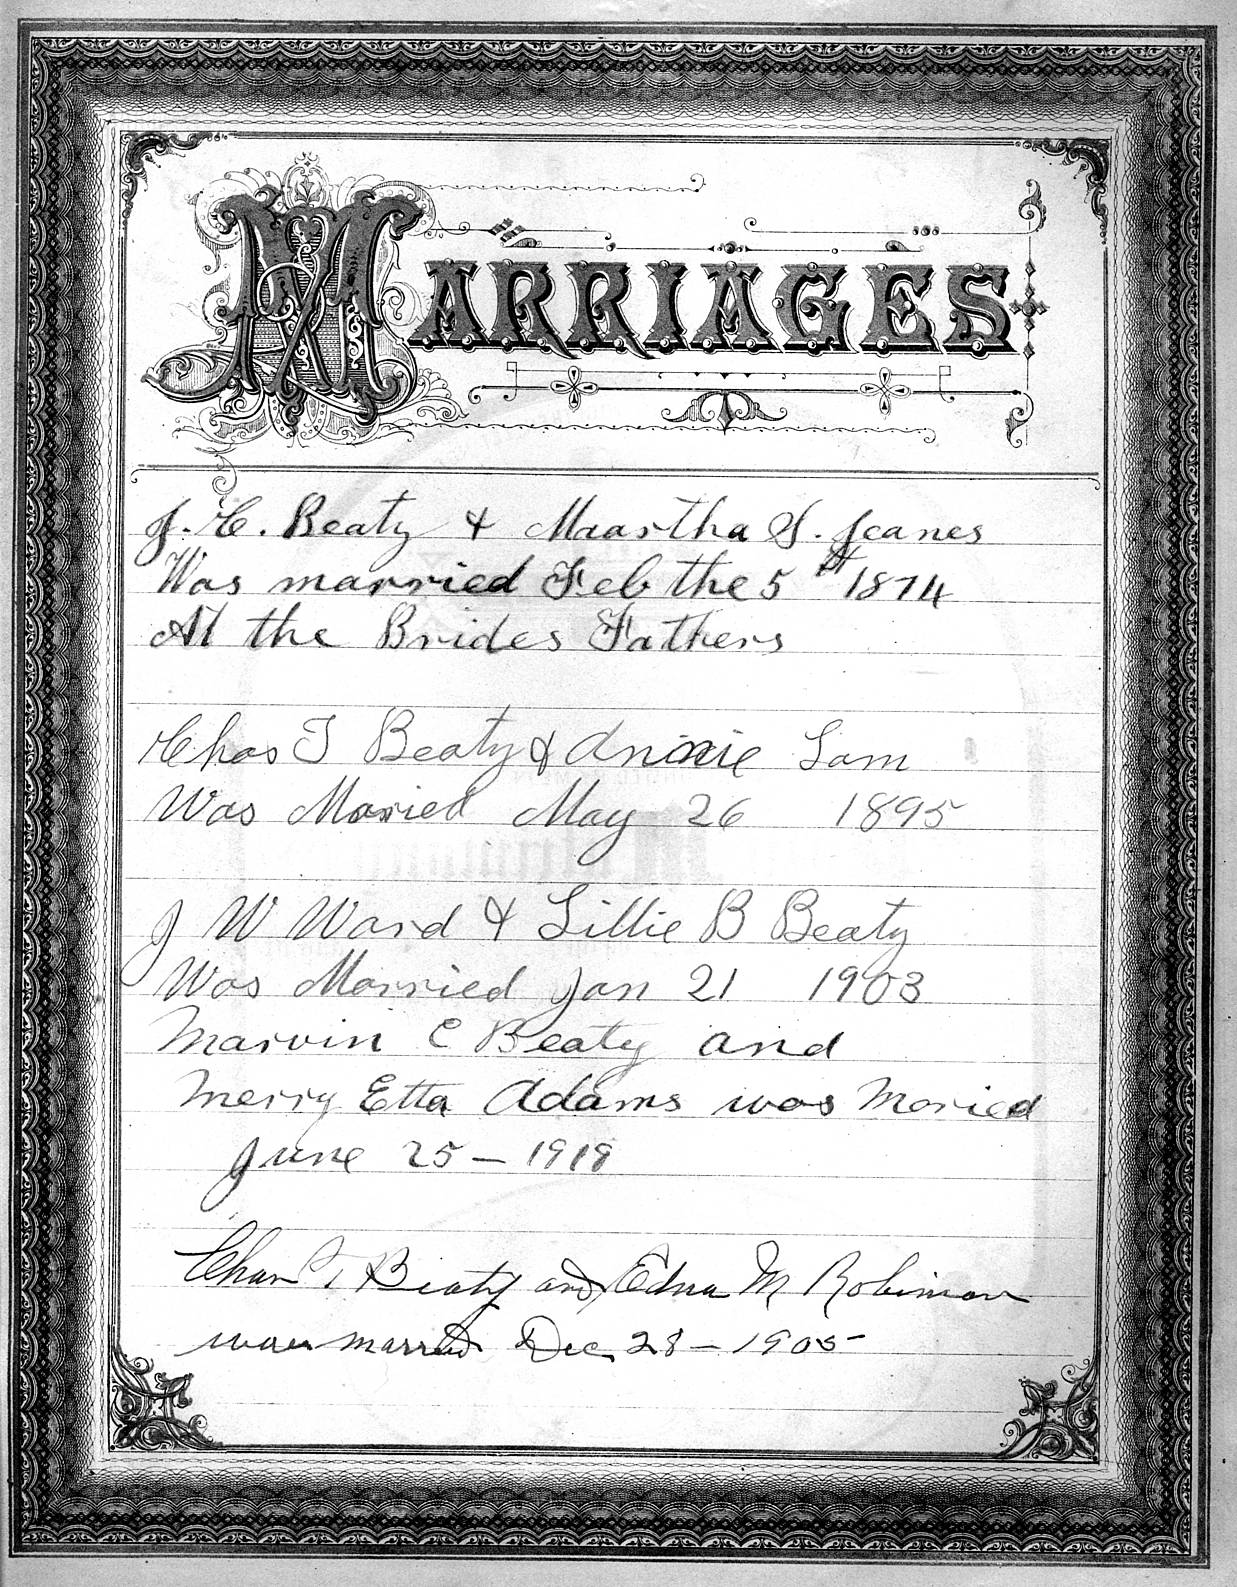 MARRIAGES
J. C. Beaty & Maartha S. Jeanes
Was married Feb the 5th 1874
At the Brides Fathers
Chas T Beaty & Annie Lam
Was Maried May 26 1895
J W Ward & Lillie B Beaty
Was Married Jan 21 1903
Marvin C Beaty and
Merry Etta Adams was Maried
June 25 - 1919
Chas T Beaty and Edna M Robinson
were married Dec 28 - 1905